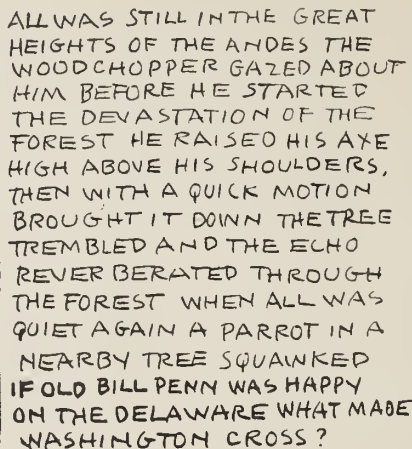 ALL WAS STILL IN THE GREAT
HEIGHTS OF THE ANDES THE
WOODCHOPPER GAZED ABOUT
HIM BEFORE HE STARTED
THE DEVASTATION OF THE
FOREST HE RAISED HIS AXE
HIGH ABOVE HIS SHOULDERS,
THEN WITH A QUICK MOTION
BROUGHT IT DOWN THE TREE
TREMBLED AND THE ECHO
REVERBERATED THROUGH
THE FOREST WHEN ALL WAS
QUIET AGAIN A PARROT IN A
NEARBY TREE SQUAWKED
IF OLD BILL PENN WAS HAPPY
ON THE DELAWARE WHAT MADE
WASHINGTON CROSS?